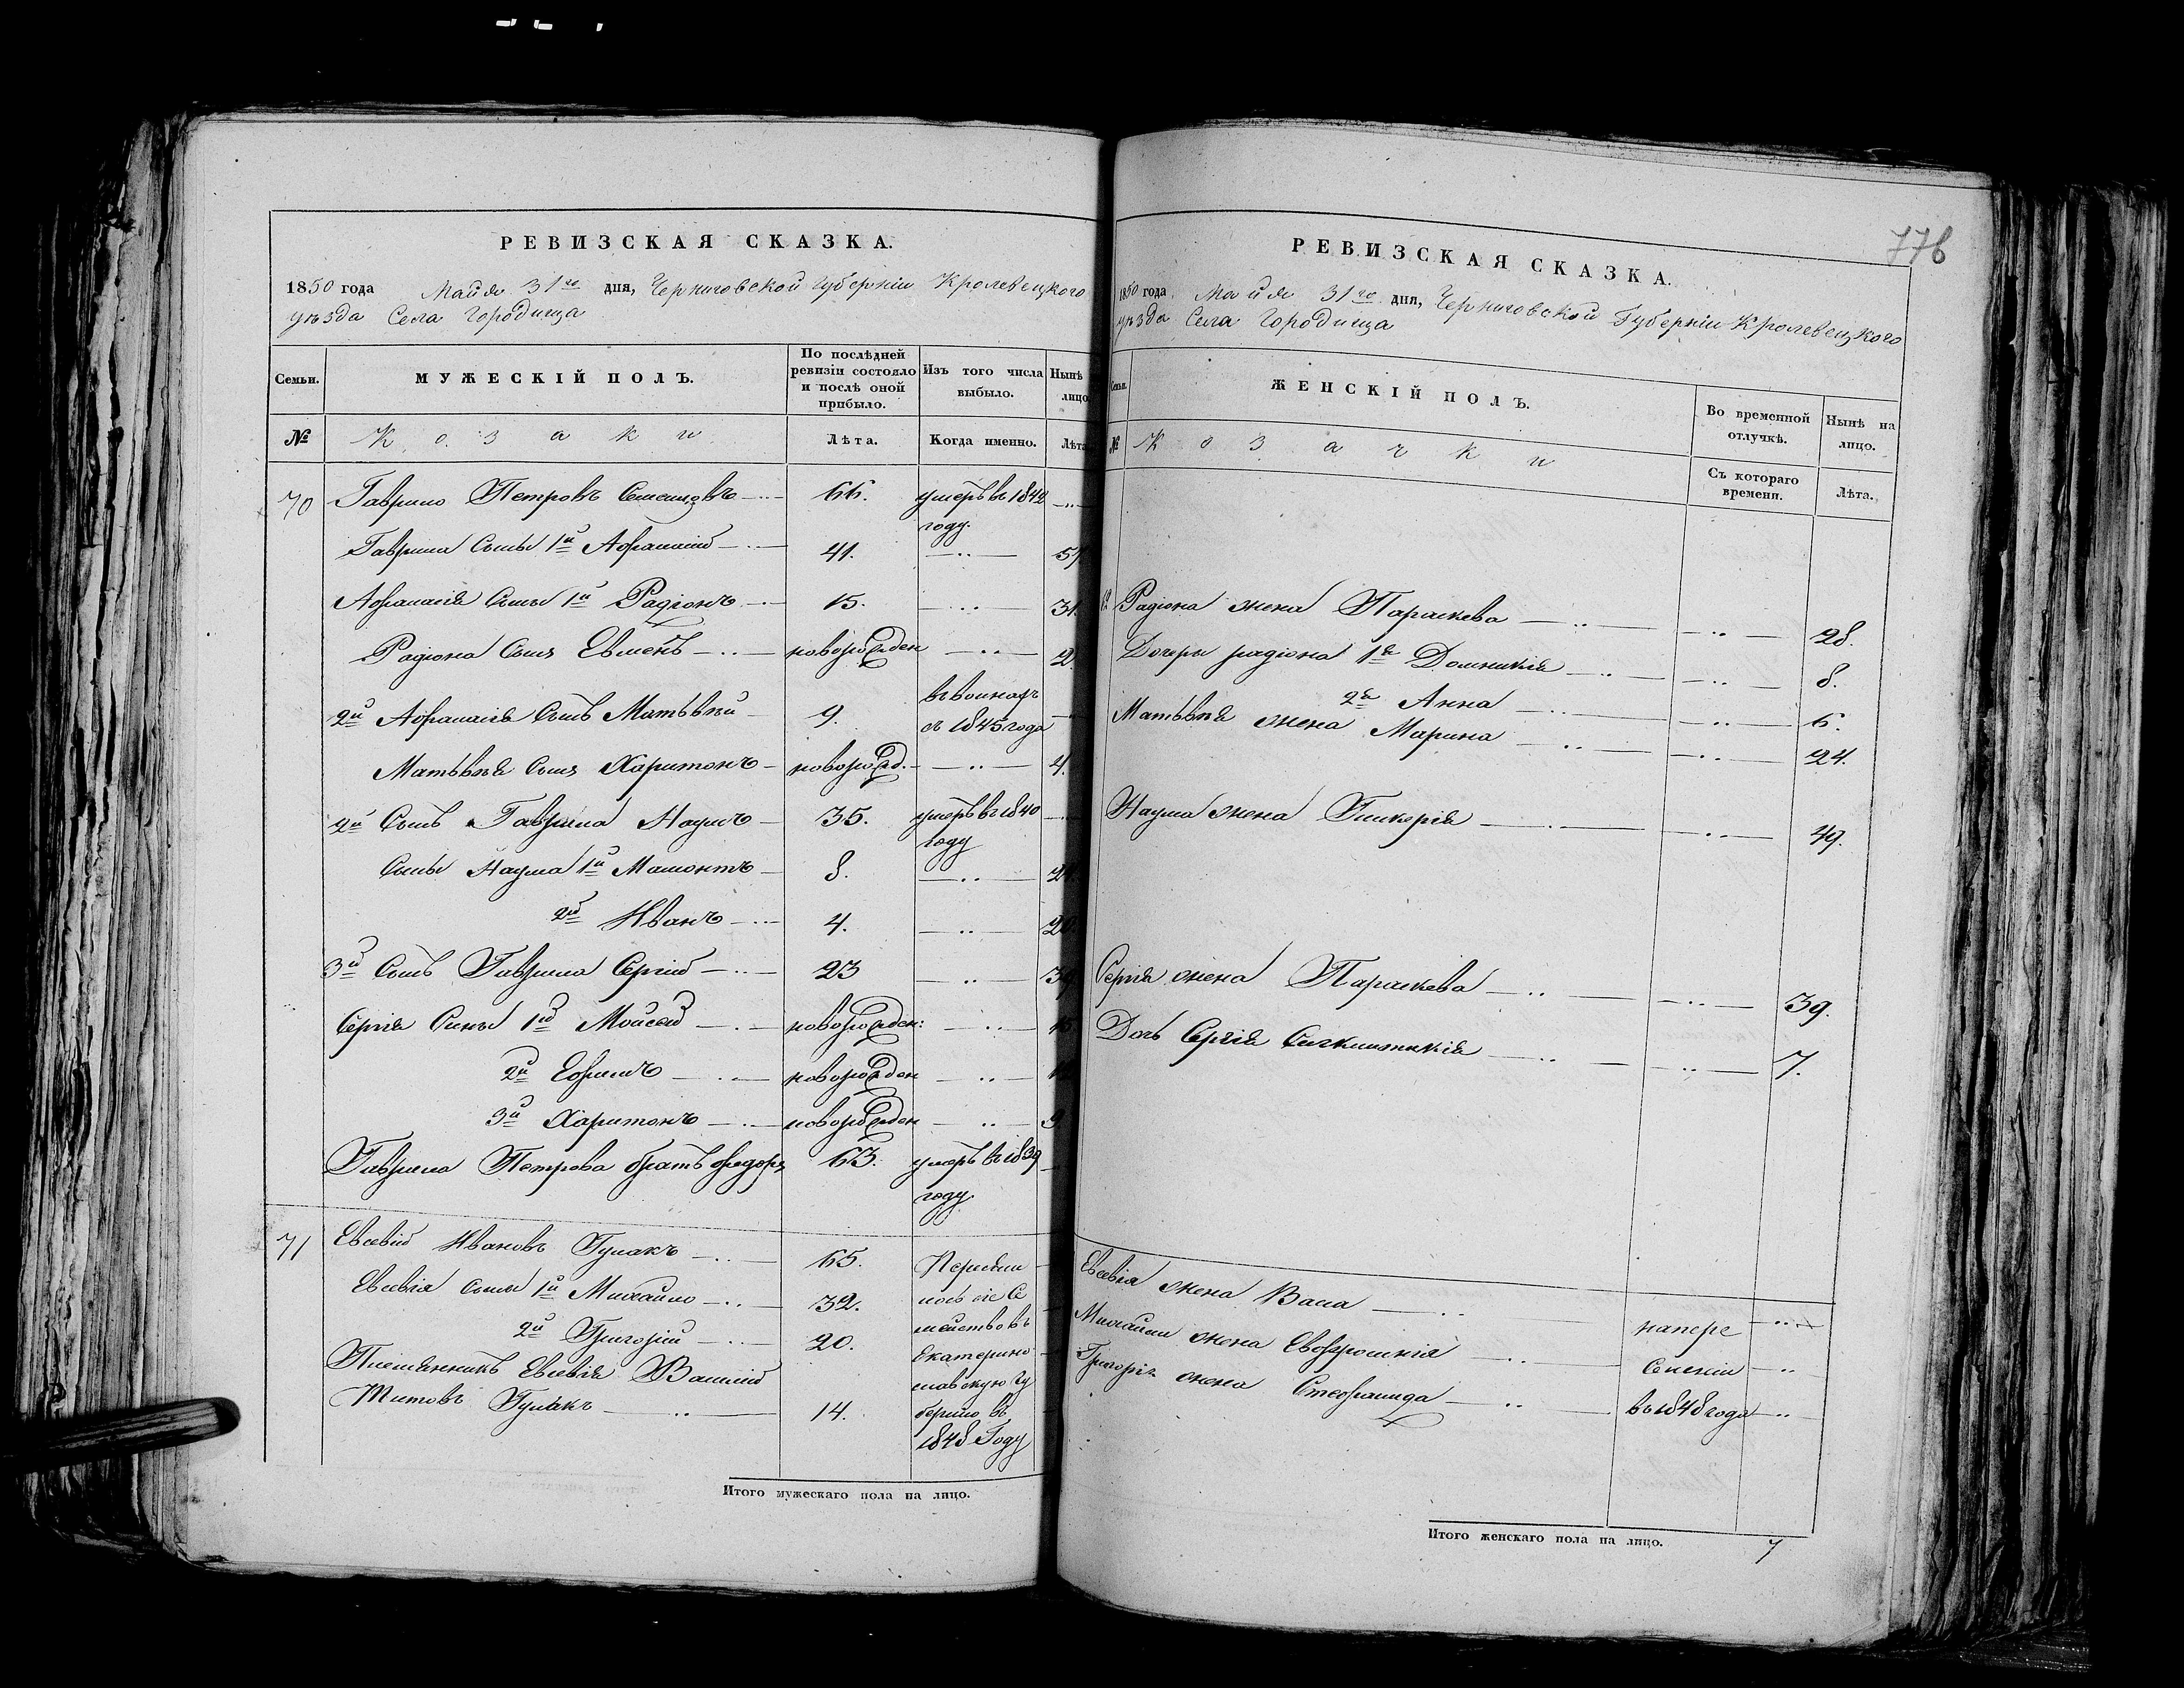 776
РЕВИЗСКАЯ СКАЗКА.
1850 года Майя 31го дня, Черниговской Губерніи Кролевецкого
уѣзда Села Городища
Семьи. МУЖЕСКІЙ ПОЛЪ. По послѣдней ревизіи состояло и послѣ оной прибыло. Изъ того числа выбыло. Нынѣ лицо
№ Козаки Лѣта. Когда именно. Лѣта
70 Гаврило Петровъ 66. умеръ въ 1842
году.
Гаврила Сыны 1й Афанасій 41.
Афанасія Сыны 1й Радіонъ 15. 31.
Радіона Сынъ Евменъ новорожден 2.
2й Афанасія Сынъ Матьвѣй 9. съ 1845 года
Матьвѣя Сынъ Харитонъ новорожд. 4.
2й Сынъ Гаврила Наумъ 35. умеръ въ 1840
году
Сыны Наума 1й Мамонтъ 8.
2й Иванъ 4. 20
3й Сынъ Гаврила Сергій 23 39
Сергія Сины 1й Мойсей новорожден:
2й Ефимъ новорожден
3й Харитонъ новорожден
Гаврила Петрова братъ Федоръ 63. умеръ въ 1839
году.
71 Евсевій Ивановъ Гулакъ 65.
Евсевія Сыны 1й Михайло 32.
2й Григорій 20.
Племянникъ Евсевія Василій
Титовъ Гулакъ 14.
Екатерино
славскую гу
бернію въ
1848 Году
Итого мужескаго пола на лицо.
РЕВИЗСКАЯ СКАЗКА.
1850 года Майя 31го дня, Черниговской Губерніи Кролевецкого
уѣзда Села Городища
Семьи. ЖЕНСКІЙ ПОЛЪ. Во временной отлучкѣ. Нынѣ на лицо.
№ Козачки Съ котораго времени. Лѣта.
Радіона жена Параскева 28.
Дочери Радіона 1я Домникія 8.
2я Анна 6.
Матьвѣя жена Марина 24.
Наума жена Гликерія 49.
Сергія жена Параскева 39.
Дочь Сергія 7.
Евсевія жена Васа
Михайла жена Евфросинія
Григорія жена Стефанида
напере
селеніи
въ 1848 года
Итого женскаго пола на лицо. 7